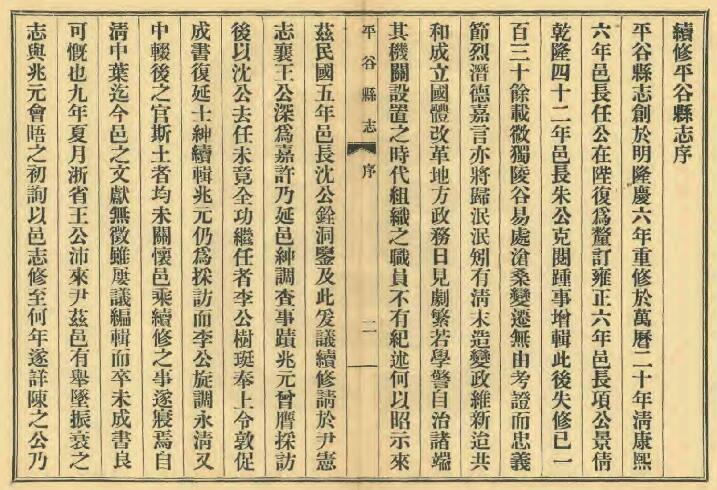 續修平谷縣志序
平谷縣志創於明隆慶六年重修於萬曆二十年淸康熙
六年邑長任公在陛復爲釐訂雍正六年邑長項公景倩
乾隆四十二年邑長朱公克閱踵事增輯此後失修已一
百三十餘載微獨陵谷易處滄桑變遷無由考證而忠義
節烈潛德嘉言亦將歸泯泯矧有淸末造變政維新迨共
和成立國體改革地方政務日見劇繁若學警自治諸端
其機關設置之時代組織之職員不有紀述何以昭示來
平谷縣志 序 二
茲民國五年邑長沈公銓洞鑒及此发議續修請於尹憲
志襄王公深爲嘉許乃延邑紳調查事蹟兆元曾膺採訪
後以沈公去任未竟全功繼任者李公樹珽奉上令敦促
成書復延士紳續輯兆元仍爲採訪而李公旋調永淸又
中輟後之官斯土者均未關懷邑乘續修之事遂寢焉自
淸中葉迄今邑之文獻無徵雖屢議編輯而卒未成書良
可慨也九年夏月浙省王公沛來尹茲邑有舉墜振衰之
志與兆元會晤之初詢以邑志修至何年遂詳陳之公乃